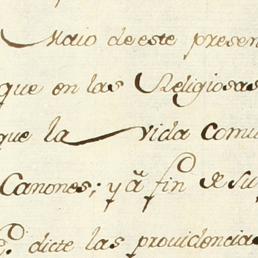 Maio de este presen
que en las Religiosas
que la vida comu
Canones; y â fin de su
dicte las providencia